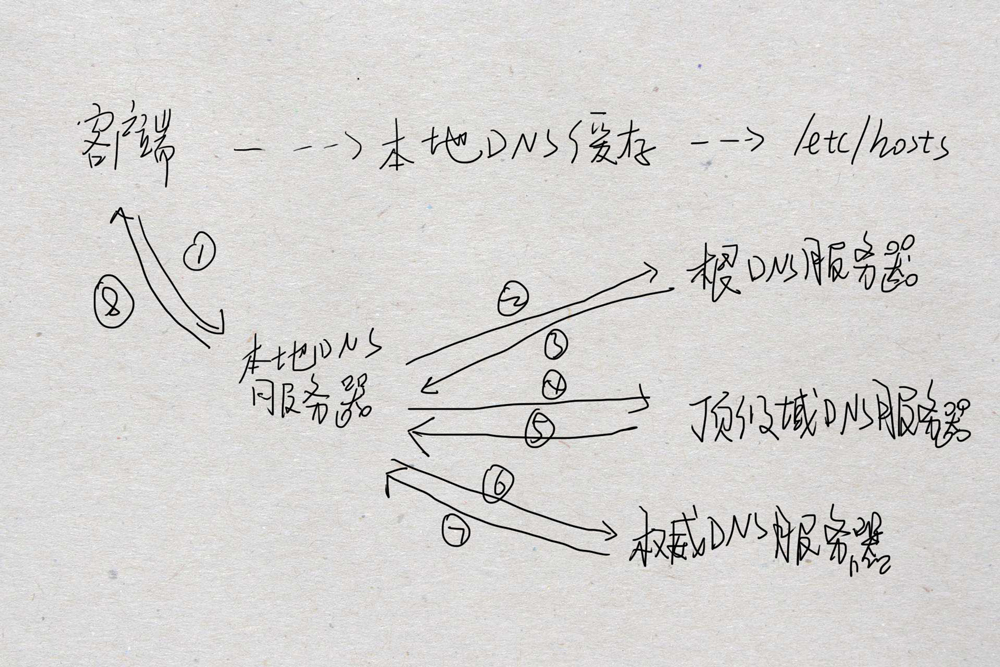 客户端 ---> 本地DNS缓存 ---> /etc/hosts
①
⑧
根DNS服务器
②
③
本地DNS
服务器
④
⑤
顶级域DNS服务器
⑥
⑦
权威DNS服务器